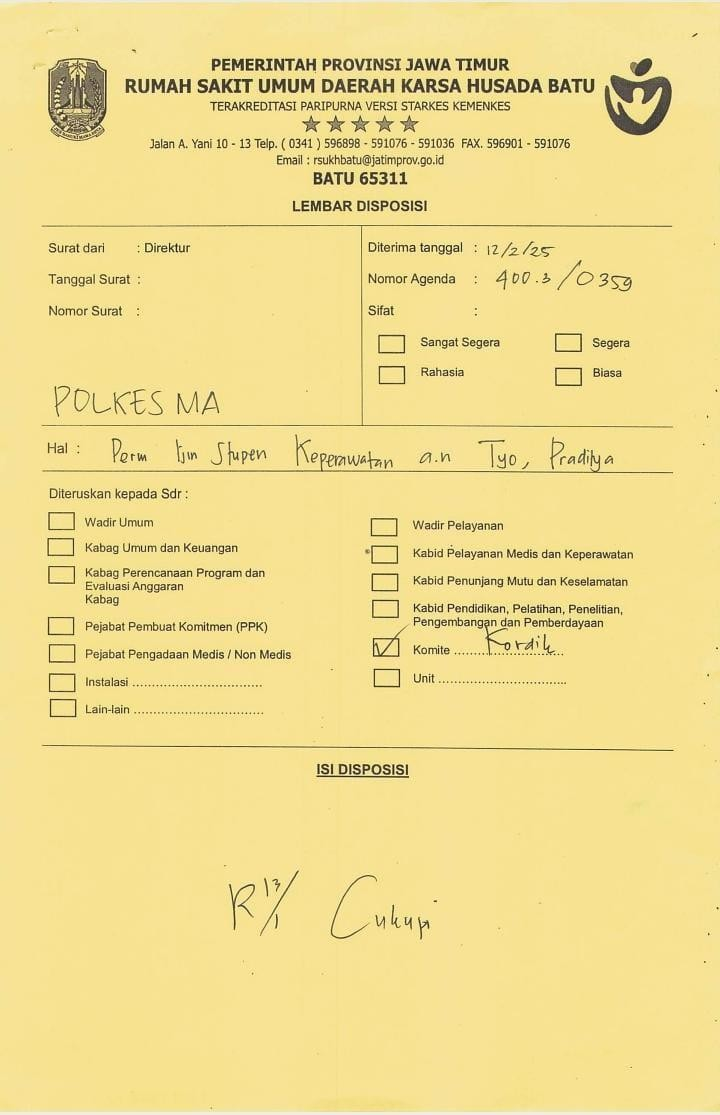 PEMERINTAH PROVINSI JAWA TIMUR
RUMAH SAKIT UMUM DAERAH KARSA HUSADA BATU
TERAKREDITASI PARIPURNA VERSI STARKES KEMENKES
Jalan A. Yani 10 - 13 Telp. ( 0341 ) 596898 - 591076 - 591036 FAX. 596901 - 591076
Email : rsukhbatu@jatimprov.go.id
BATU 65311
LEMBAR DISPOSISI
Surat dari : Direktur
Tanggal Surat :
Nomor Surat :
POLKESMA
Diterima tanggal : 12/2/25
Nomor Agenda : 400.3/0359
Sifat :
Sangat Segera
Segera
Rahasia
Biasa
Hal : Perm Ijin Stupen Keperawatan a.n Tyo, Praditya
Diteruskan kepada Sdr :
Wadir Umum
Kabag Umum dan Keuangan
Kabag Perencanaan Program dan
Evaluasi Anggaran
Kabag
Pejabat Pembuat Komitmen (PPK)
Pejabat Pengadaan Medis / Non Medis
Instalasi ..................................
Lain-lain ..................................
Wadir Pelayanan
Kabid Pelayanan Medis dan Keperawatan
Kabid Penunjang Mutu dan Keselamatan
Kabid Pendidikan, Pelatihan, Penelitian,
Pengembangan dan Pemberdayaan
Komite Kordik
Unit ..................................
ISI DISPOSISI
Cukupi